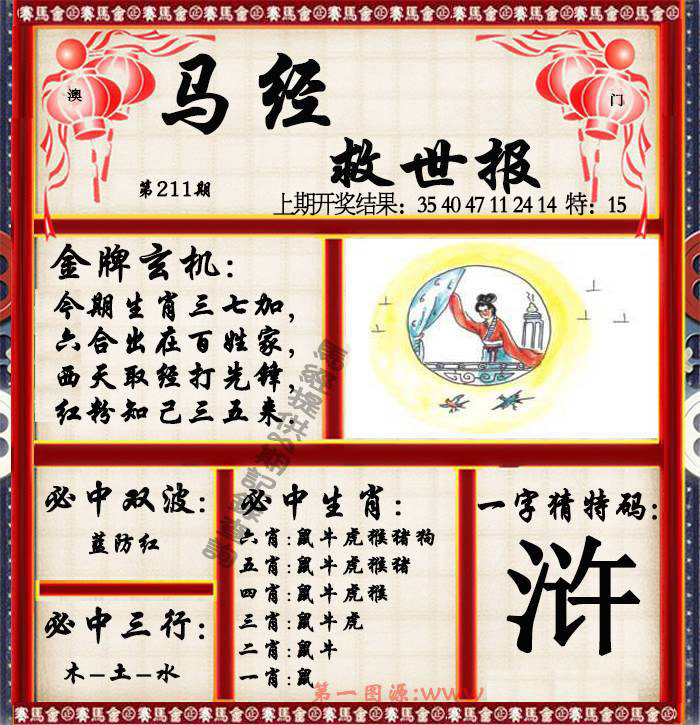 賽馬會正賽馬會正賽馬會正賽馬會正賽馬會正賽馬會
澳
门
马经
救世报
第211期
上期开奖结果: 35 40 47 11 24 14 特: 15
金牌玄机:
今期生肖三七加,
六合出在百姓家,
西天取经打先锋,
红粉知己三五来.
必中双波:
蓝防红
必中三行:
木-土-水
必中生肖:
六肖:鼠牛虎猴猪狗
五肖:鼠牛虎猴猪
四肖:鼠牛虎猴
三肖:鼠牛虎
二肖:鼠牛
一肖:鼠
一字猜特码:
浒
第一图源:www